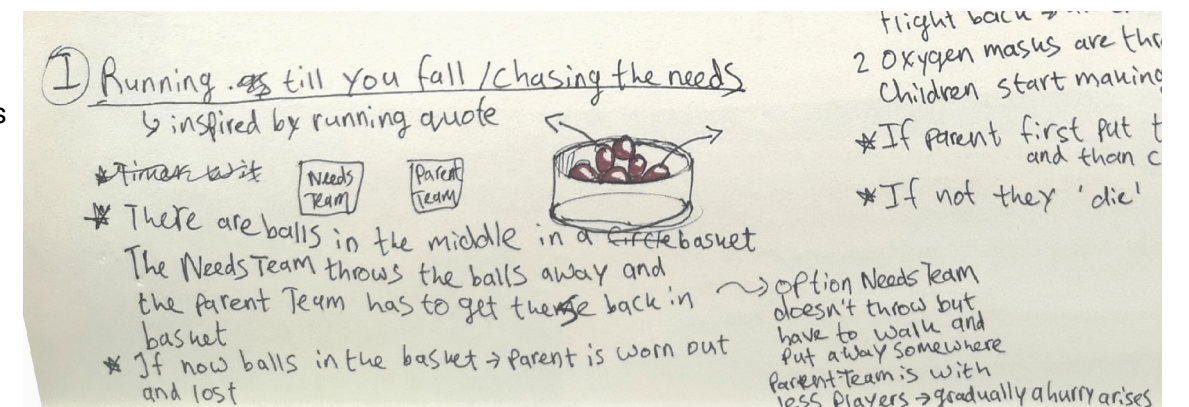 s
1 Running till you fall / chasing the needs
↳ inspired by running quote
Needs Team
Parent Team
* There are balls in the middle in a circle basket
The Needs Team throws the balls away and
the parent Team has to get these back in
basket
* If now balls in the basket → parent is worn out
and lost
→ option Needs Team
doesn't throw but
have to walk and
put away somewhere
parent Team is with
less players → gradually a hurry arises
flight back →
2 oxygen masks are
Children start making
* If parent first put
and than
* If not they 'die'